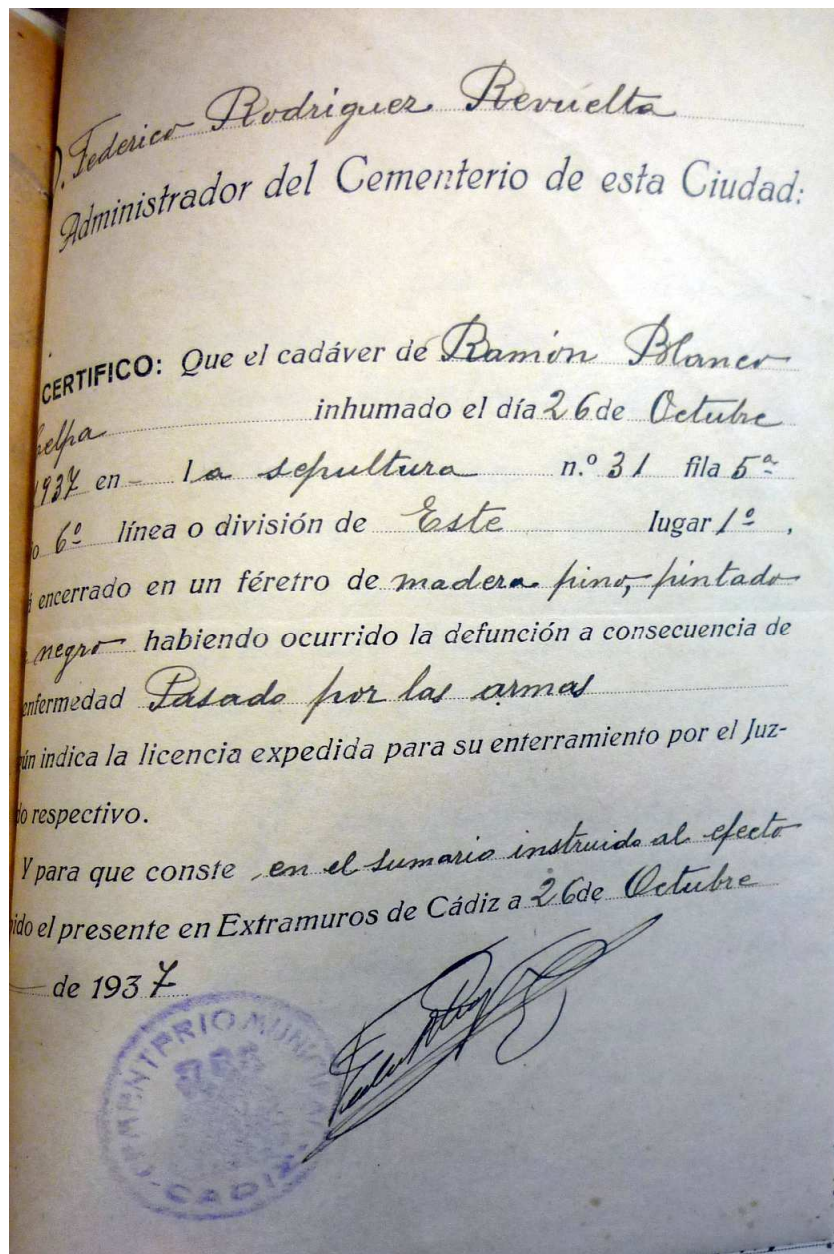 D. Federico Rodriguez Revuelta
Administrador del Cementerio de esta Ciudad:
CERTIFICO: Que el cadáver de Ramón Blanco
inhumado el día 26 de Octubre
1937 en la sepultura n.º 31 fila 5ª
6º línea o división de Este lugar 1º,
encerrado en un féretro de madera pino, pintado
negro habiendo ocurrido la defunción a consecuencia de
enfermedad Pasado por las armas
ún indica la licencia expedida para su enterramiento por el Juz-
do respectivo.
Y para que conste, en el sumario instruido al efecto
ido el presente en Extramuros de Cádiz a 26 de Octubre
de 1937
CEMENTERIO MUNICIPAL
CADIZ